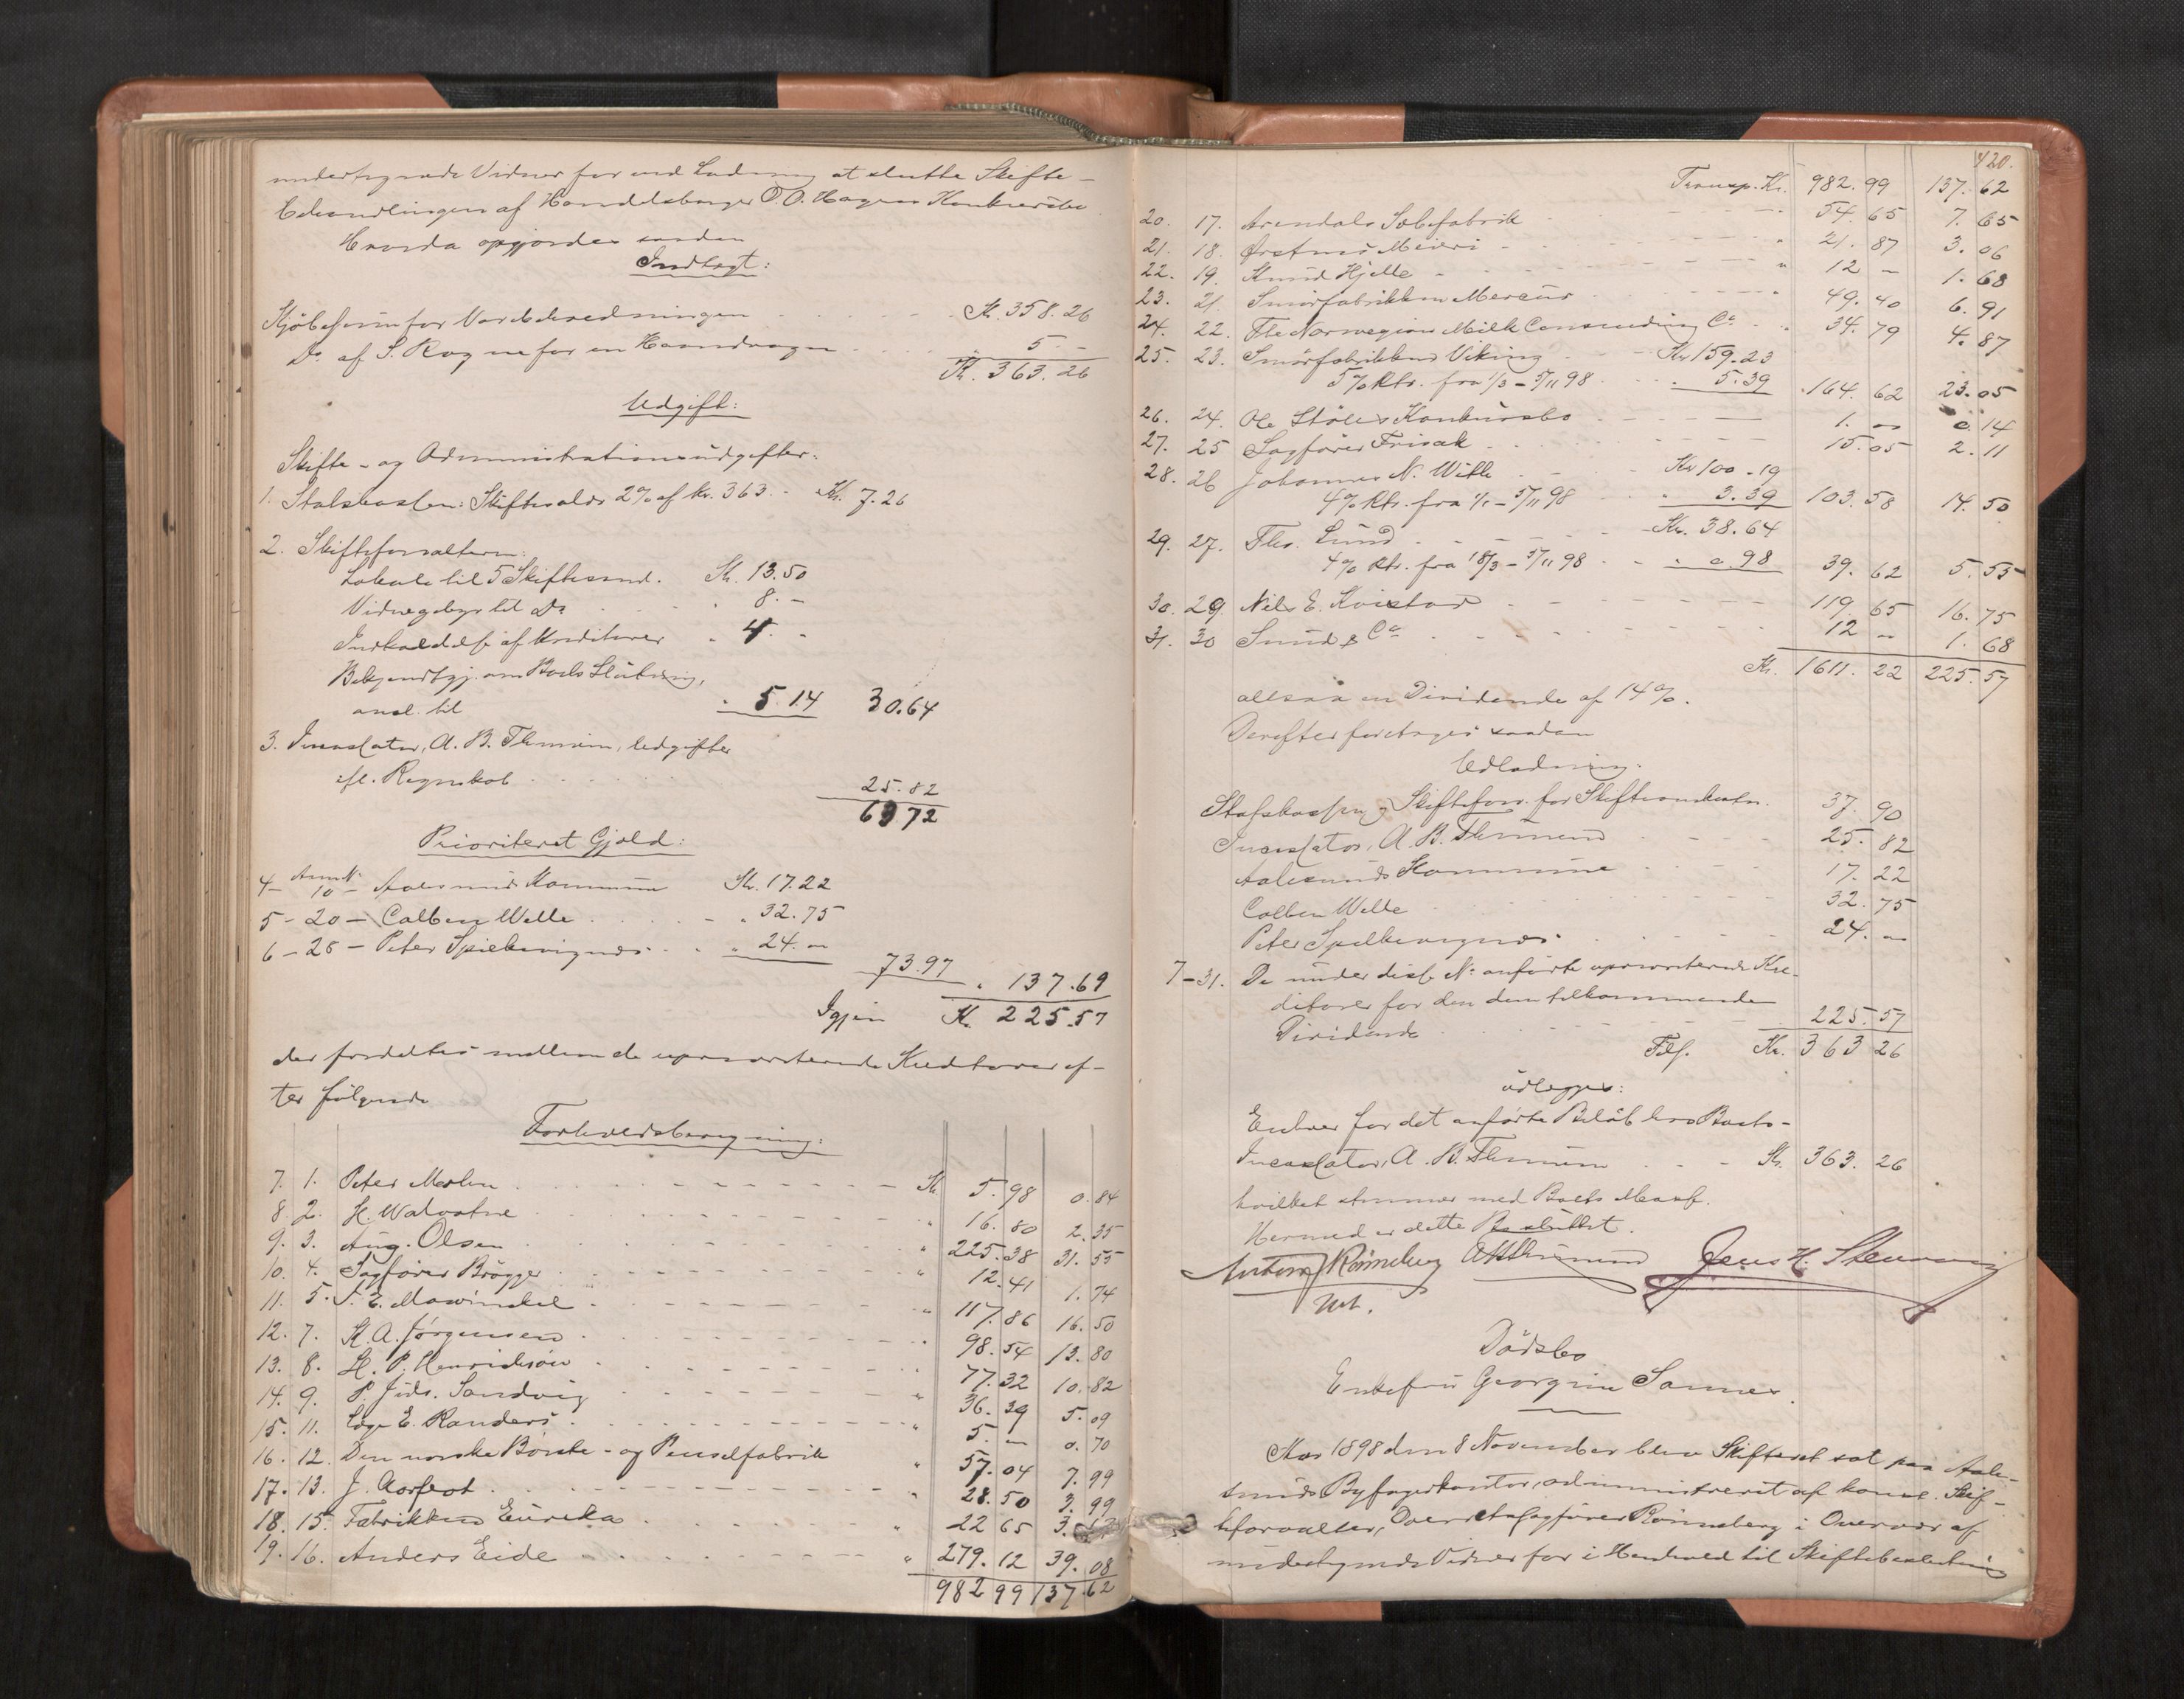 undertegnede Vidner for ved Ladning at slutte Skifte-
behandlingen af Handelsborger O. O. Hagens Konkursbo
Hvorda opgjordes saadan
Indtægt:
Kjöbesum for Varebeholdningen Kr. 358.26
Do. af S. Rogne for en Haandvogn " 5 -
Kr. 363.26
Udgift:
Skifte- og Administrationsudgifter:
1. Statskassen: Skiftesalær 2% af kr. 363. - Kr. 7.26
2. Skifteforvalteren:
Lokale til 5 Skiftesaml. Kr. 13.50
Vidnegebyr til Do " 8. -
Indkaldelse af Kreditorer " 4. -
Bekjendtgj. om Boets Slutning,
ansl. til " 5.14 30.64
3. Incassator, A. B. Thunem, Udgifter
efl. Regnskab 25.82
63 72
Prioriteret Gjæld:
Anm. N.
4- 10 - Aalesunds Kommune Kr. 17.22
5 - 20 - Colben Welle " 32.75
6 - 28 - Peter Spjelkevignes " 24. -
73.97 " 137.69
Igjen Kr. 225.57
der fordeltes mellem de uprioriterede Kreditorer ef-
ter følgende
Forholdsberegning:
7. 1. Peter Moslen Kr. 5.98 0.84
8. 2. H. Walvatne " 16.80 2.35
9. 3. Aug. Olsen " 225.38 31.55
10. 4. Sagfører Brøgger " 12.41 1.74
11. 5. J. E. Mowinckel " 117.86 16.50
12. 7. K. A. Jørgensen " 98.54 13.80
13. 8. H. P. Henriksön " 77.32 10.82
14. 9. P. Juds. Sandvig " 36.39 5.09
15. 11. Læge E. Randers " 5. - 0.70
16. 12. Den norske Børste- og Penselfabrik " 57.04 7.99
17. 13. J. Aarflot " 28.50 3.99
18. 15. Fabrikken Eureka " 22 65 3.
19. 16. Anders Eide " 279.12 39.08
982 99 137.62
420.
Transp. Kr. 982.99 137.62
20. 17. Arendals Sæbefabrik " 54.65 7.65
21. 18. Ørstens Meieri " 21.87 3.06
22. 19. Knud Hjelle " 12 - 1.68
23. 21. Smörfabrikken Mercur " 49.40 6.91
24. 22. The Norwegian Milk Condensing Co. " 34.79 4.87
25. 23. Smörfabrikken Viking Kr 159.23
5% Rts. fra 1/3 - 5/11 98 " 5.39 164.62 23.05
26. 24. Ole Stölens Konkursbo 1. - 0.14
27. 25 Sagfører Frisak 15.05 2.11
28. 26 Johannes N. Witte Kr 100.19
4% Rts. fra 1/1 - 5/11 98 " 3.39 103.58 14.50
29. 27. Ths. Lund Kr. 38.64
4% Rts. fra 18/3 - 5/11 98 " 0.98 39.62 5.55
30. 29. Nils E. Kvistad 119.65 16.75
31. 30 Sund & Co 12 - 1.68
Kr. 1611.22 225.57
altsaa en Dividende af 14%.
Derefter foretoges saadan
Udlodning:
Statskassen og Skifteforv. for Skifteomkostn. 37.90
Incassator, A. B. Thunem 25.82
Aalesunds Kommune 17.22
Colben Welle 32.75
Peter Spjelkevignes 24. -
7-31. De under disse No anførte uprioriterede Kre-
ditorer for den dem tilkommende
Dividende 225.57
Tils. Kr. 363 26
udlægges:
Enhver for det anførte Beløb hos Boets-
Incassator, A. B. Thunem Kr. 363.26
hvilket stemmer med Boets Masse.
Hermed er dette Bo sluttet.
Anton Rønneberg A B Thunem Jens H. Stenersen
Dödsbo
Enkefru Georgine Sannes.
Aar 1898 den 8 November blev Skifteret sat paa Aale-
sunds Byfogedkontor, administreret af konst. Skif-
teforvalter, Overretssagfører Rønneberg i Overvær af
undertegnede Vidner for i Henhold til Skiftebeslutning